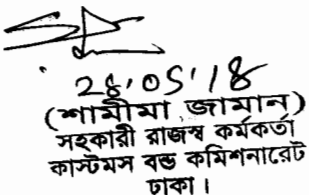 ২৪.০৫.১৮
(শামীমা জামান)
সহকারী রাজস্ব কর্মকর্তা
কাস্টমস বন্ড কমিশনারেট
ঢাকা।